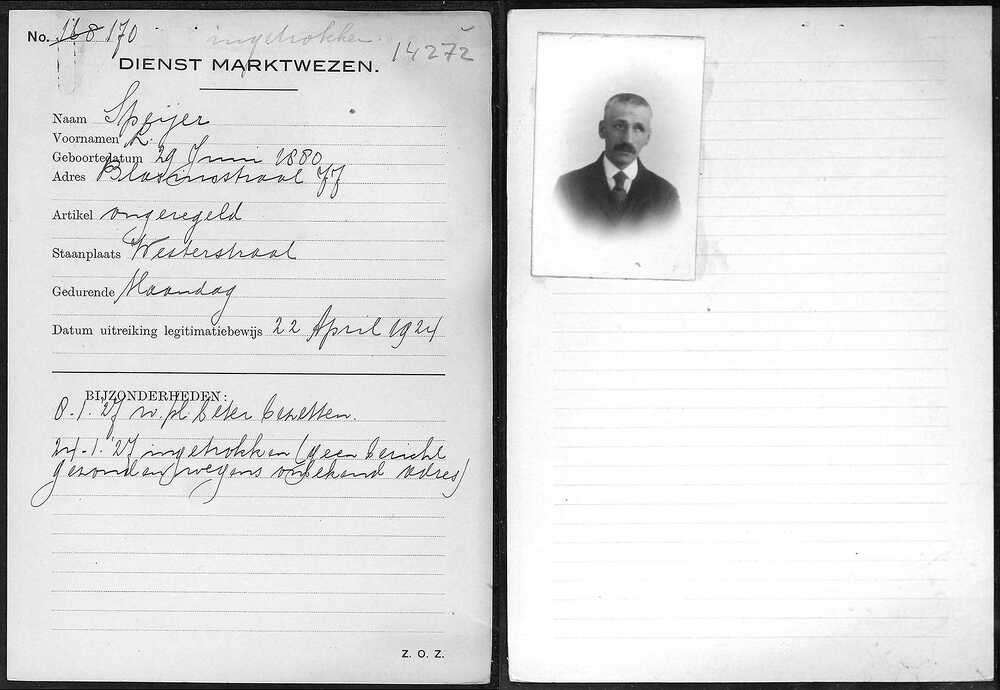 No. 168 170 ingetrokken. 14272
DIENST MARKTWEZEN.
Naam Speijer
Voornamen L.
Geboortedatum 29 Juni 1880
Adres Blasiusstraat 77
Artikel ongeregeld
Staanplaats Westerstraat
Gedurende Maandag
Datum uitreiking legitimatiebewijs 22 April 1924
BIJZONDERHEDEN:
8-1.'27 w. pl. beter bezetten.
24-1.'27 ingetrokken (geen bericht
gezonden wegens onbekend adres)
Z. O. Z.